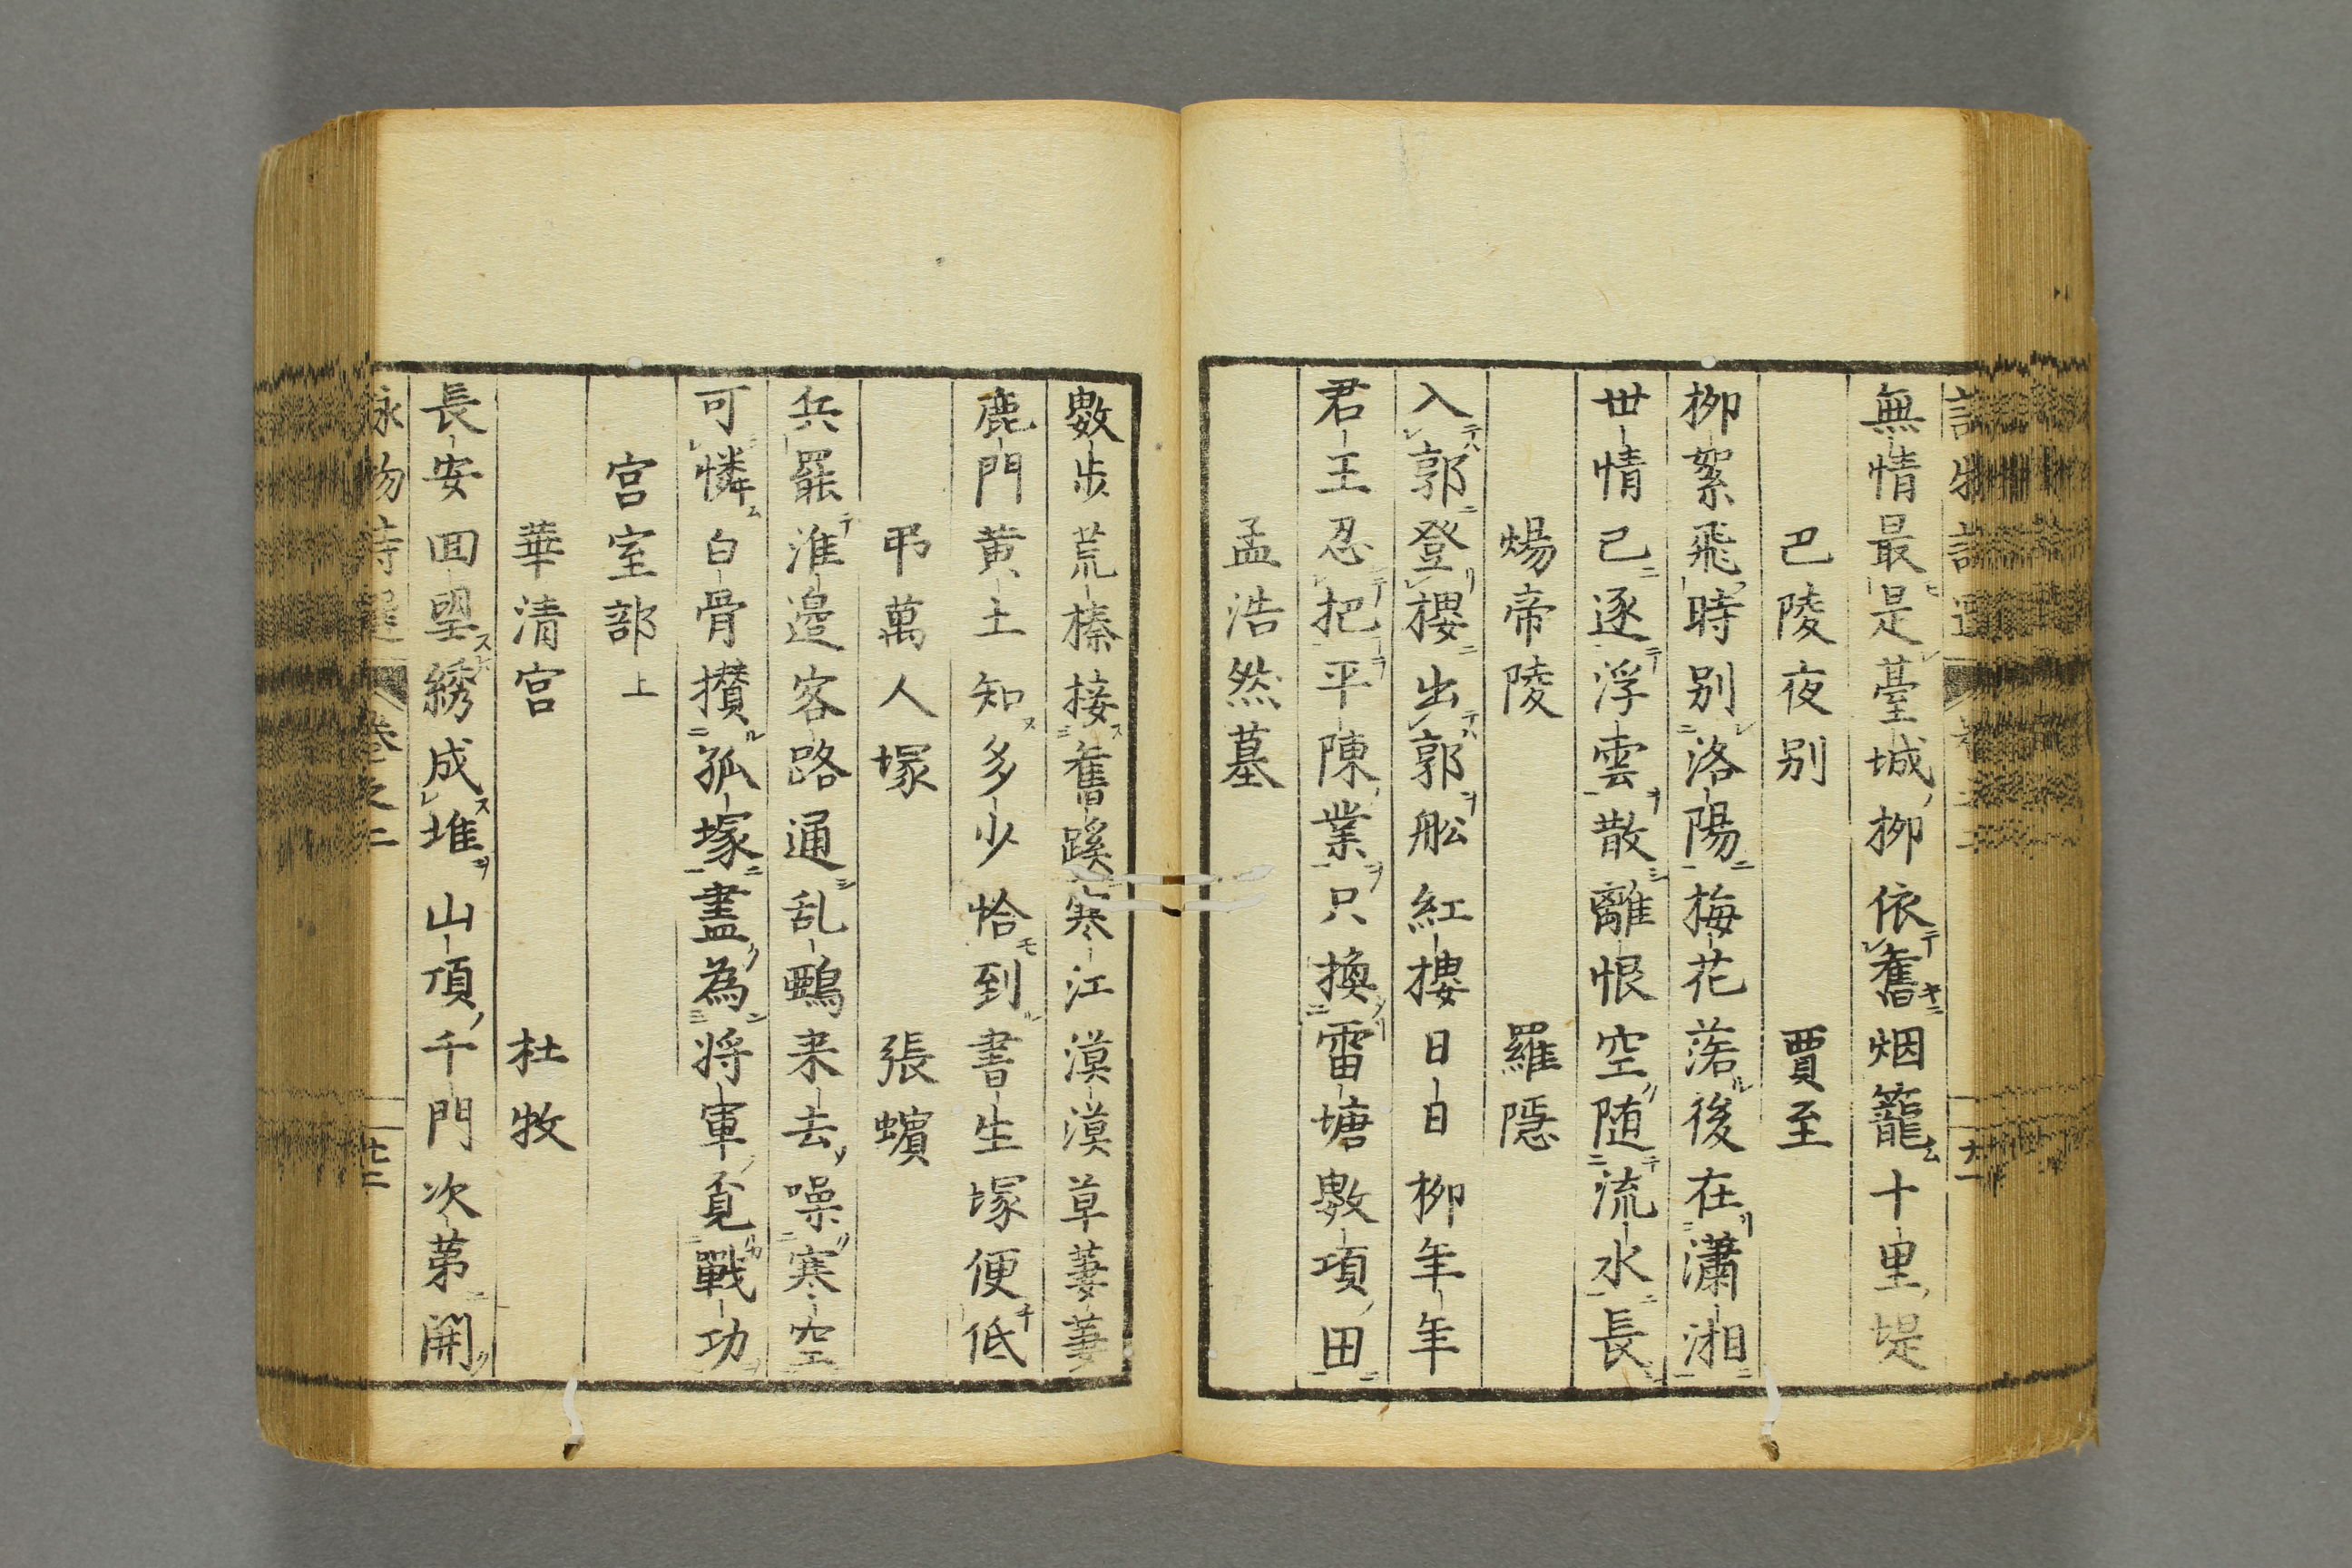 無情最是臺城柳依舊烟籠十里堤
巴陵夜別 賈至
柳絮飛時別洛陽梅花落後在瀟湘
世情已逐浮雲散離恨空随流水長
煬帝陵 羅隱
入郭登樓出郭舩紅樓日日柳年年
君王忍把平陳業只換雷塘數項田
孟浩然墓
數步荒榛接舊蹊寒江漠漠草萋萋
鹿門黄土知多少恰到書生塚便低
弔萬人塚 張蠙
兵罷淮邉客路通乱鵶来去噪寒空
可憐白骨攅孤塚盡為将軍覓戰功
宮室部上
華清宮 杜牧
長安囬望綉成堆山頂千門次第開
詠物詩選 卷之二